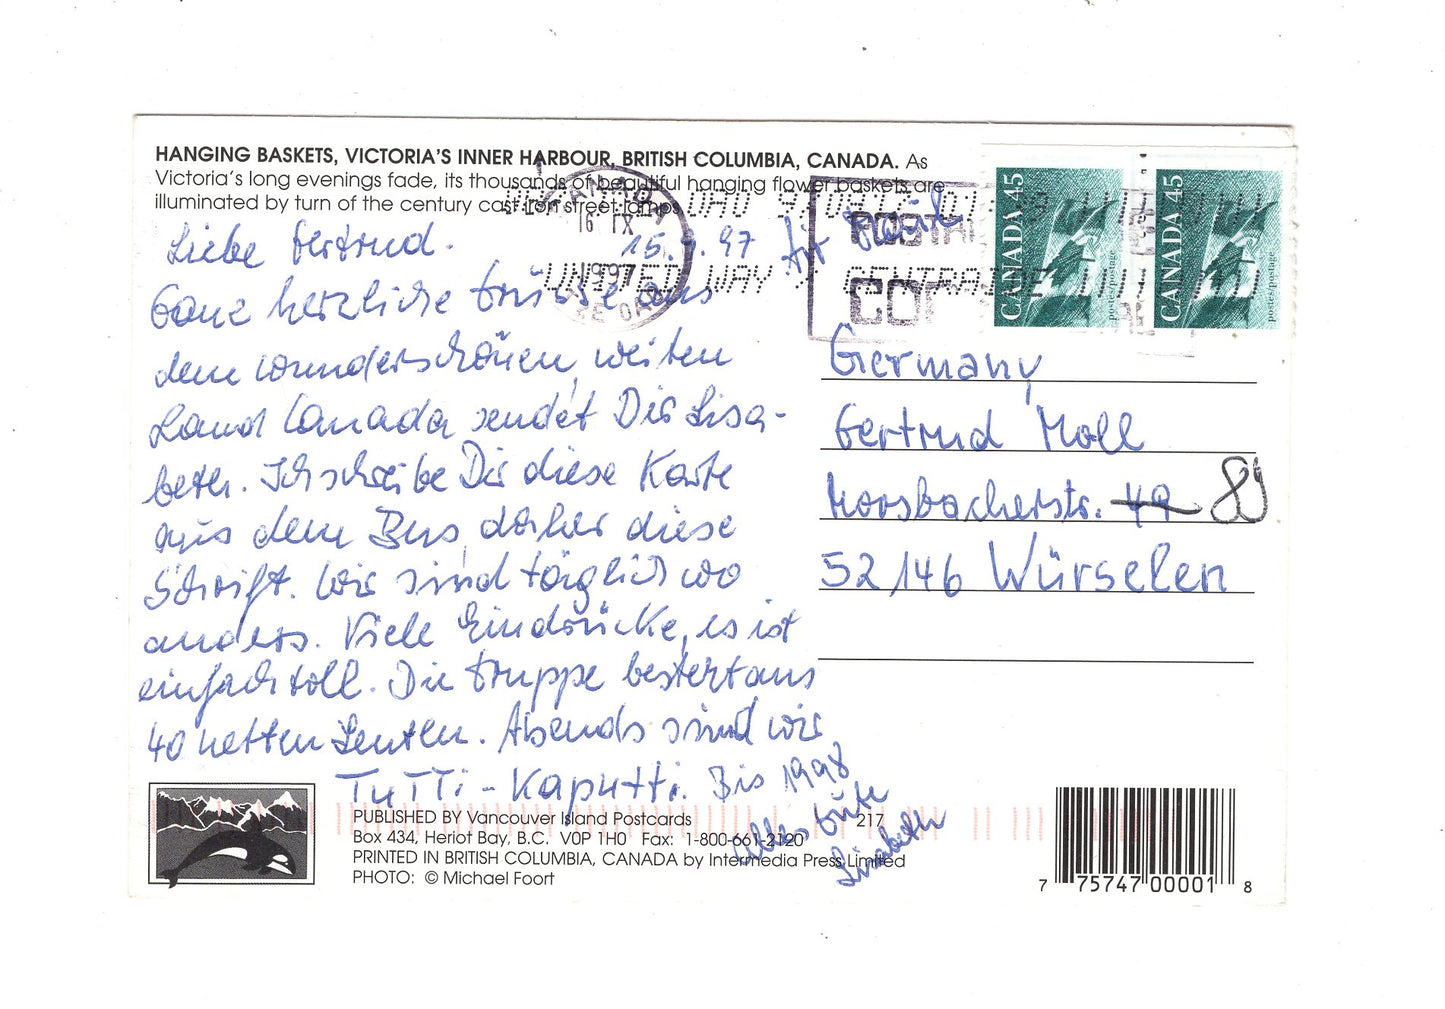 HANGING BASKETS, VICTORIA'S INNER HARBOUR, BRITISH COLUMBIA, CANADA. As
Victoria's long evenings fade, its thousands of beautiful hanging flower baskets are
illuminated by turn of the century cast iron street lamps.
CANADA
16 IX
1997
UNITED WAY / CENTRAIDE
POSTAL
CO
CANADA 45
postes/postage
CANADA 45
postes/postage
15.9.97
Liebe Gertrud.
Ganz herzliche Grüsse aus
dem wunderschönen, weiten
Land Canada sendet Dir Lisa-
beth. Ich schreibe Dir diese Karte
aus dem Bus, daher diese
Schrift. Wir sind täglich wo
anders. Viele Eindrücke, es ist
einfach toll. Die Gruppe besteht aus
40 netten Leuten. Abends sind wir
TuTTi-Kaputti. Bis 1998
alles Gute
Lisabeth
Air
Germany
Gertrud Moll
Morsbacherstr. 49 89
52146 Würselen
PUBLISHED BY Vancouver Island Postcards
217
Box 434, Heriot Bay, B.C. V0P 1H0 Fax: 1-800-661-2120
PRINTED IN BRITISH COLUMBIA, CANADA by Intermedia Press Limited
PHOTO: © Michael Foort
7 75747 00001 8